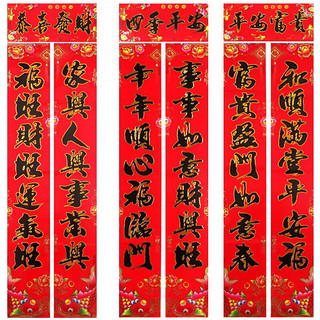 恭喜發財
家興人興事業興
福旺財旺運氣旺
四季平安
事事如意財興旺
年年順心福臨門
平安富貴
和順滿堂平安福
富貴盈門如意春